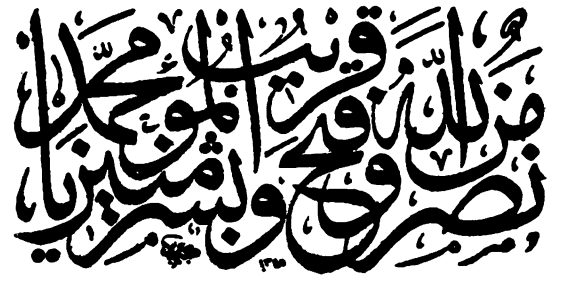 نصر من الله وفتح قريب وبشر المؤمنين يا محمد